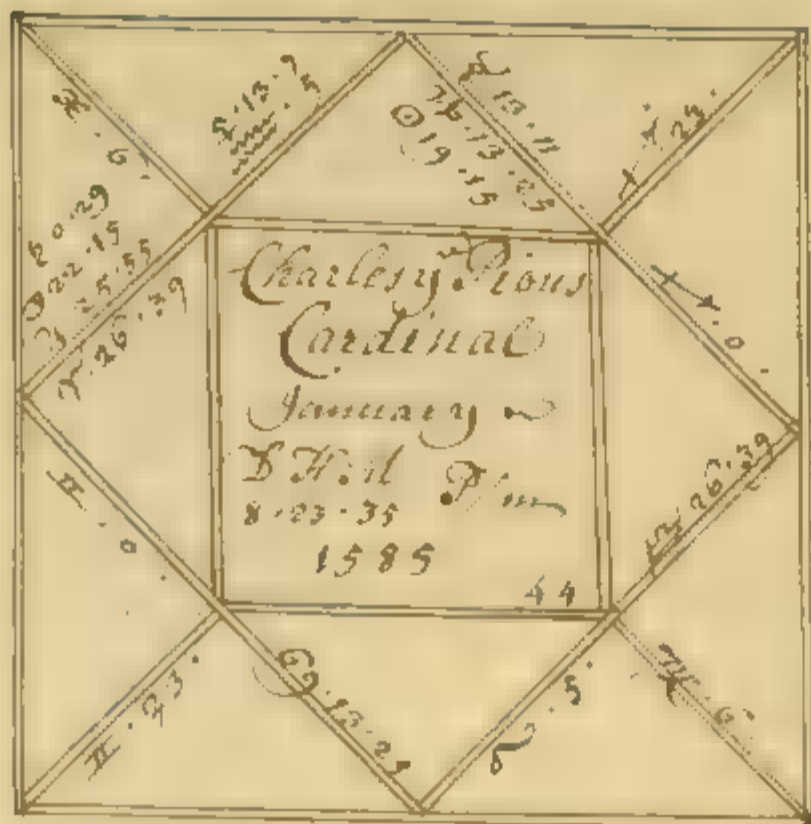 Charles Pious
Cardinal
January
D H M P m
8 · 23 · 35
1585
44
♓ · 6
♒ · 5
13 · 11
♑ · 13 · 25
☉ 19 · 15
♐ 23 ·
♐ · 0 ·
0 · 29
22 · 15
25 · 55
♈ · 26 · 39
♎ 26 · 39
♊ · 0
♊ · 23 ·
♋ · 13 · 25
♌ · 5 ·
♍ · 6